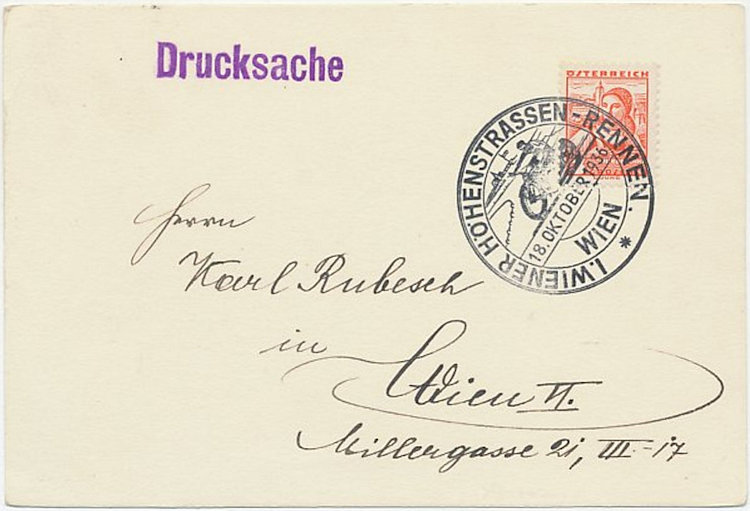 Drucksache
ÖSTERREICH
I. WIENER HÖHENSTRASSEN-RENNEN.
18. OKTOBER 1936
WIEN
Herrn
Karl Rubesch
in
Wien VI.
Millergasse 21, III-17